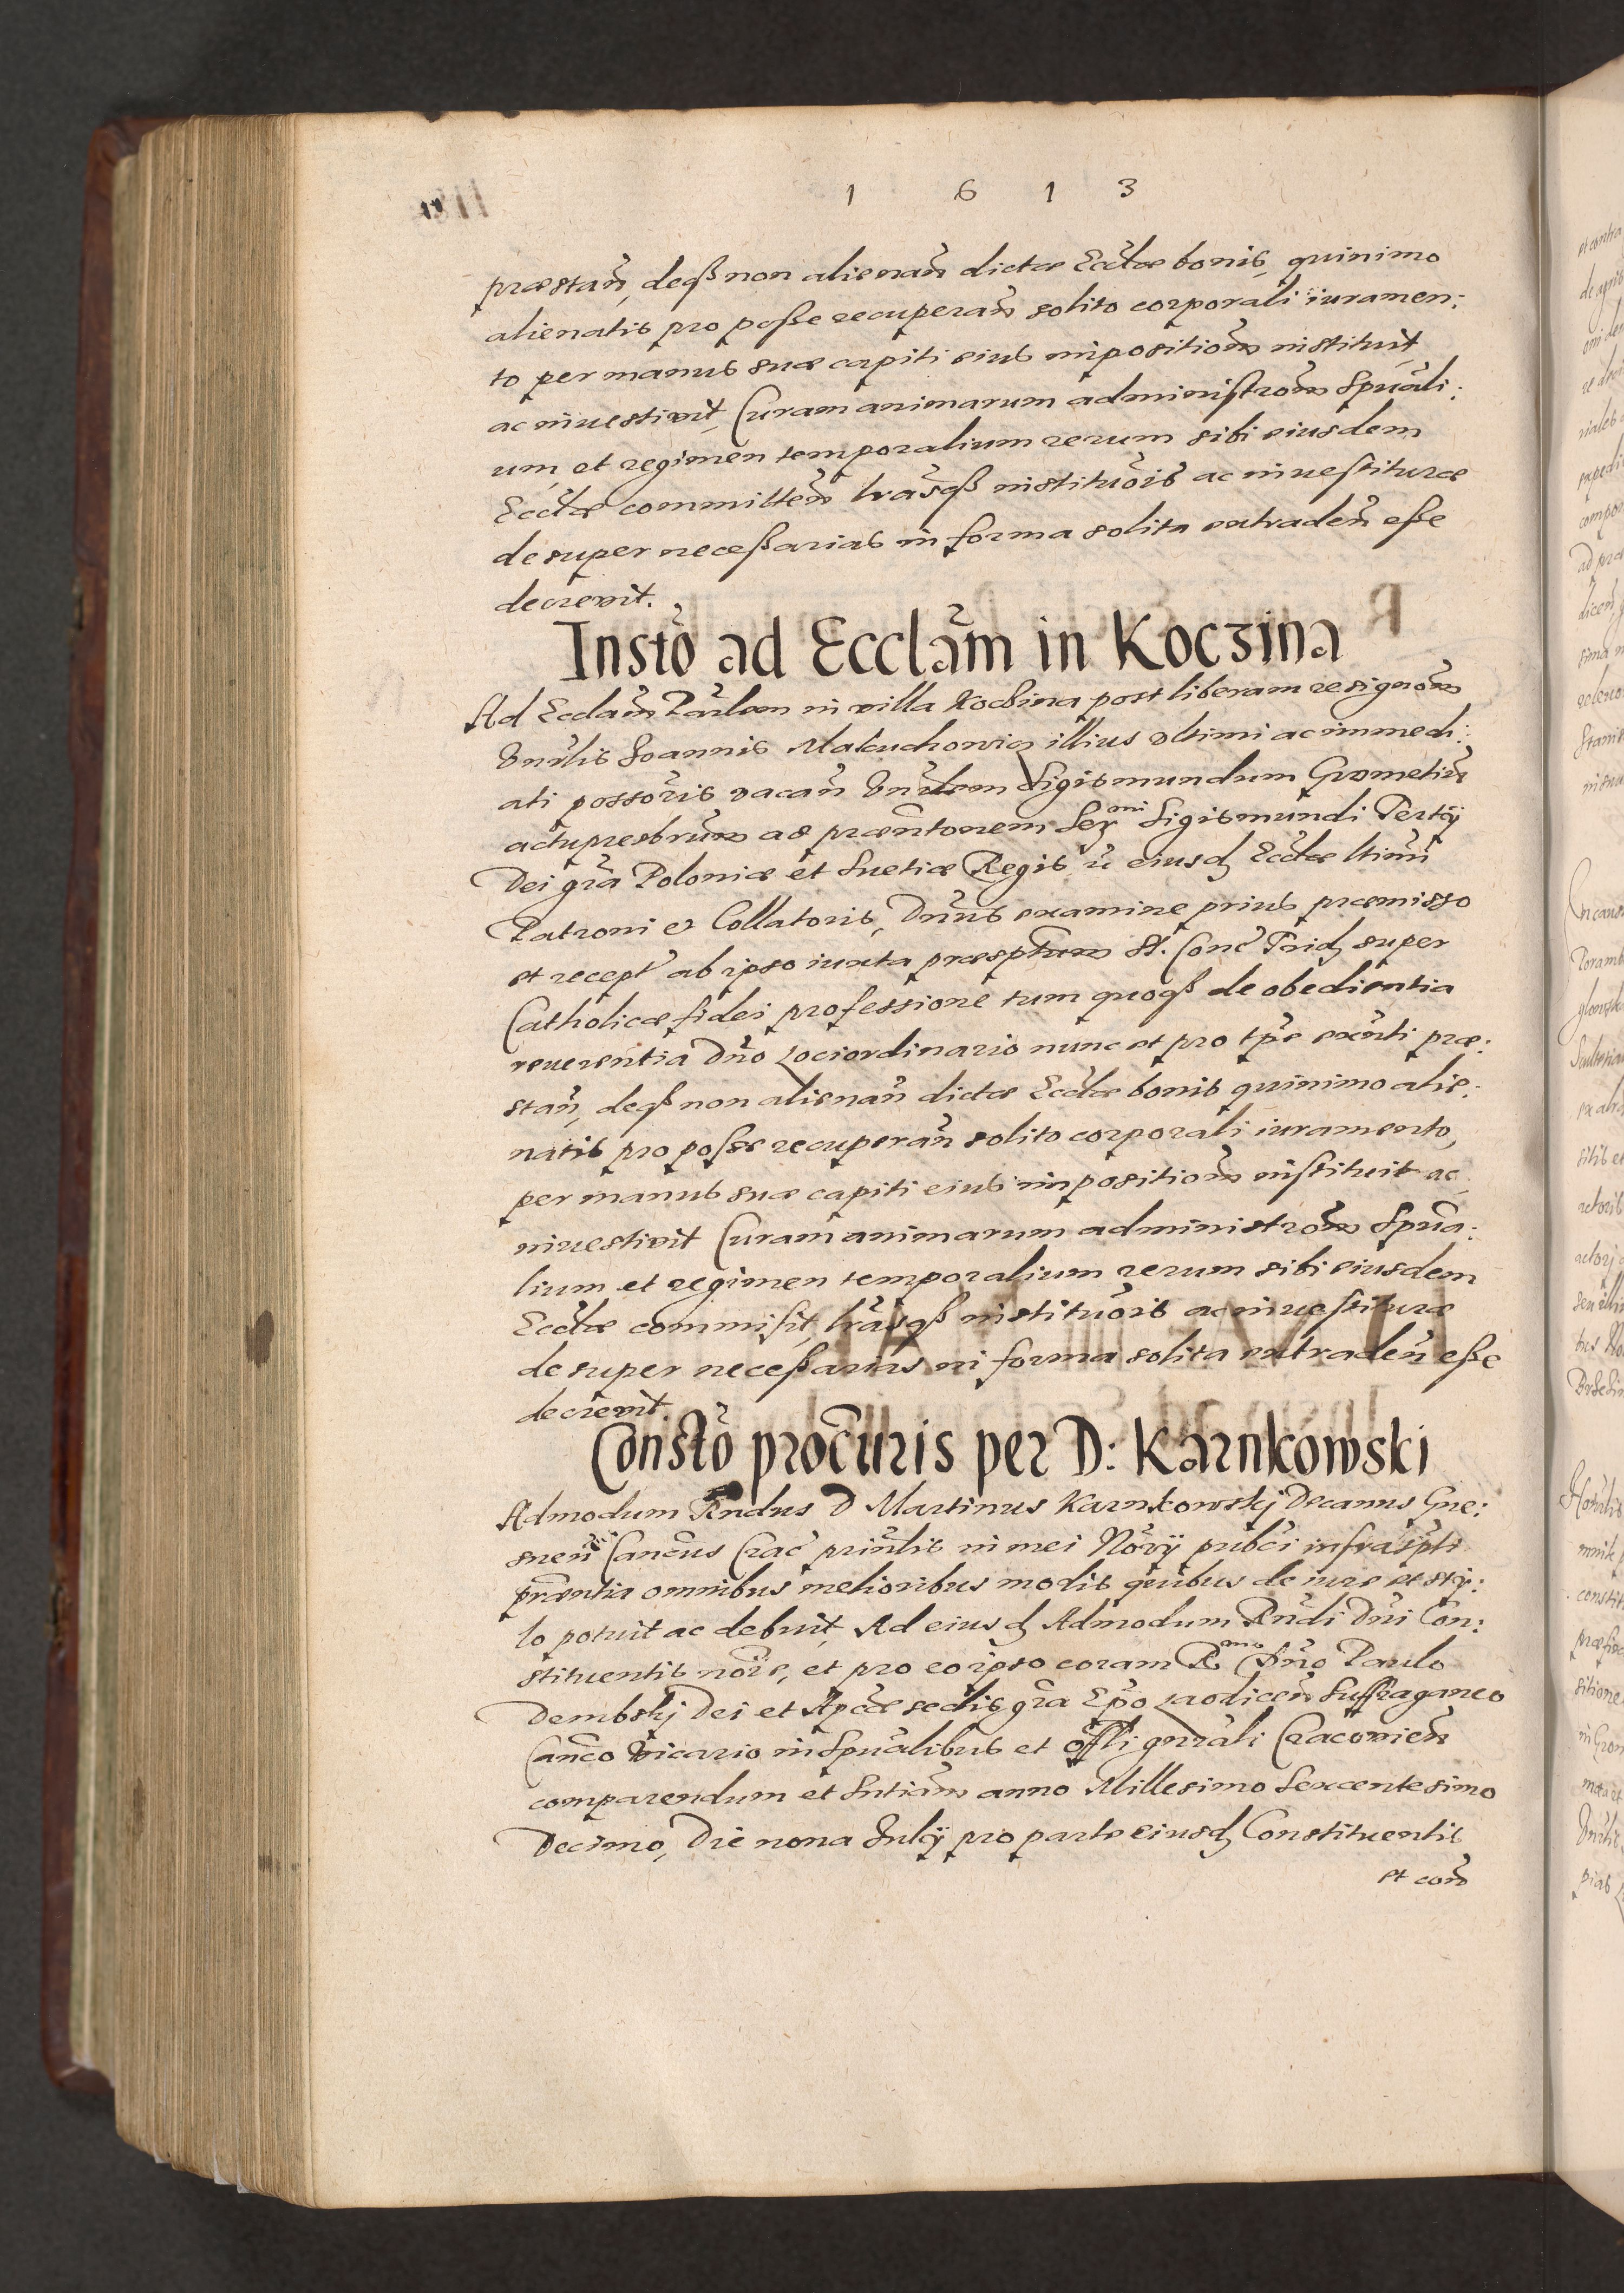 1 6 1 3
præstan̄, deqß non alienan̄ dictæ Eccl̄æ bonis, quinimo
alienatis pro posse recuperan̄ solito corporali iuramen:
to per manus suæ capiti eius impositiom̄ instituit
ac inuestiuit, Curam animarum administrom̄ Spūali:
um, et regimen temporalium rerum sibi eiusdem
Eccl̄æ committen̄ Lrāsqß institūōis ac inuestituræ
desuper necessarias in forma solita extraden̄ esse
decreuit.
Instō ad Ecclām in Koczina
Ad Ecclām Parl̄em in villa Koczina post liberam resignom̄
Honūlis Joannis Malcuchowicz illius vltimi ac immedi:
ati possoris vacan̄ Honūlem Sigismundum Grometiū
actu presbrūm ad præntōnem Serᵐⁱ Sigismundi Tertÿ
Dei grā Poloniæ et Suetiæ Regis ū eiusd Eccl̄æ ltimi
Patroni et Collatoris, Dnūs examine prius præmisso
et recept̄ ab ipso iuxta præsptum St. Conc̄ Trid super
Catholicæ fidei professione tum quoqß de obedientia
reuerentia Dn̄o Lociordinario nunc et pro tp̄e exn̄ti præ:
stan̄, deqß non alienan̄ dictæ Eccl̄æ bonis quinimo alie:
natis pro posse recuperan̄ solito corporali iuramento,
per manus suæ capiti eius impositiom̄ instituit ac
inuestiuit Curam animarum administrom̄ Spūa:
lium et regimen temporalium rerum sibi eiusdem
Eccl̄æ commisit, Lrāsqß institūōis ac inuestituræ
desuper necessarias in forma solita extraden̄ esse
decreuit
Constō procūris per D: Karnkowski
Admodum Rndus D Martinus Karnkowskj Decanus Gne:
snen̄ Cancūs Crac̄ prinlis in mei Norÿ publci infrascripti
præntia omnibus melioribus modis quibus de iure et sty:
lo potuit ac debuit, Ad eiusd Admodum Rndi Dn̄i Con:
stituentis nōie, et pro eo ipso coram Rᵐᵒ Dn̄o Paulo
Dembskj Dei et Aplcæ sedis grā Ep̄o Laodicen̄ Suffraganeo
Canco Vicario in Spūalibus et Offli gnrali Cracouien̄
comparendum et Sntiam̄ anno Millesimo Sexcentesimo
Decimo, Die nona Julÿ pro parte eiusd Constituentis
et con̄